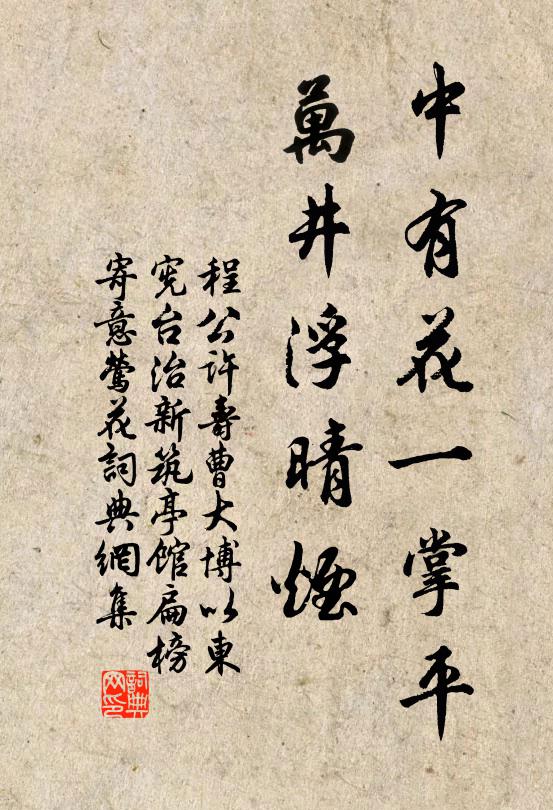 中有花一掌平
萬井浮晴煙
程公許壽曹大博以東
宪台治新筑亭館扁榜
寄意鶯花詞典網集
詞典网印